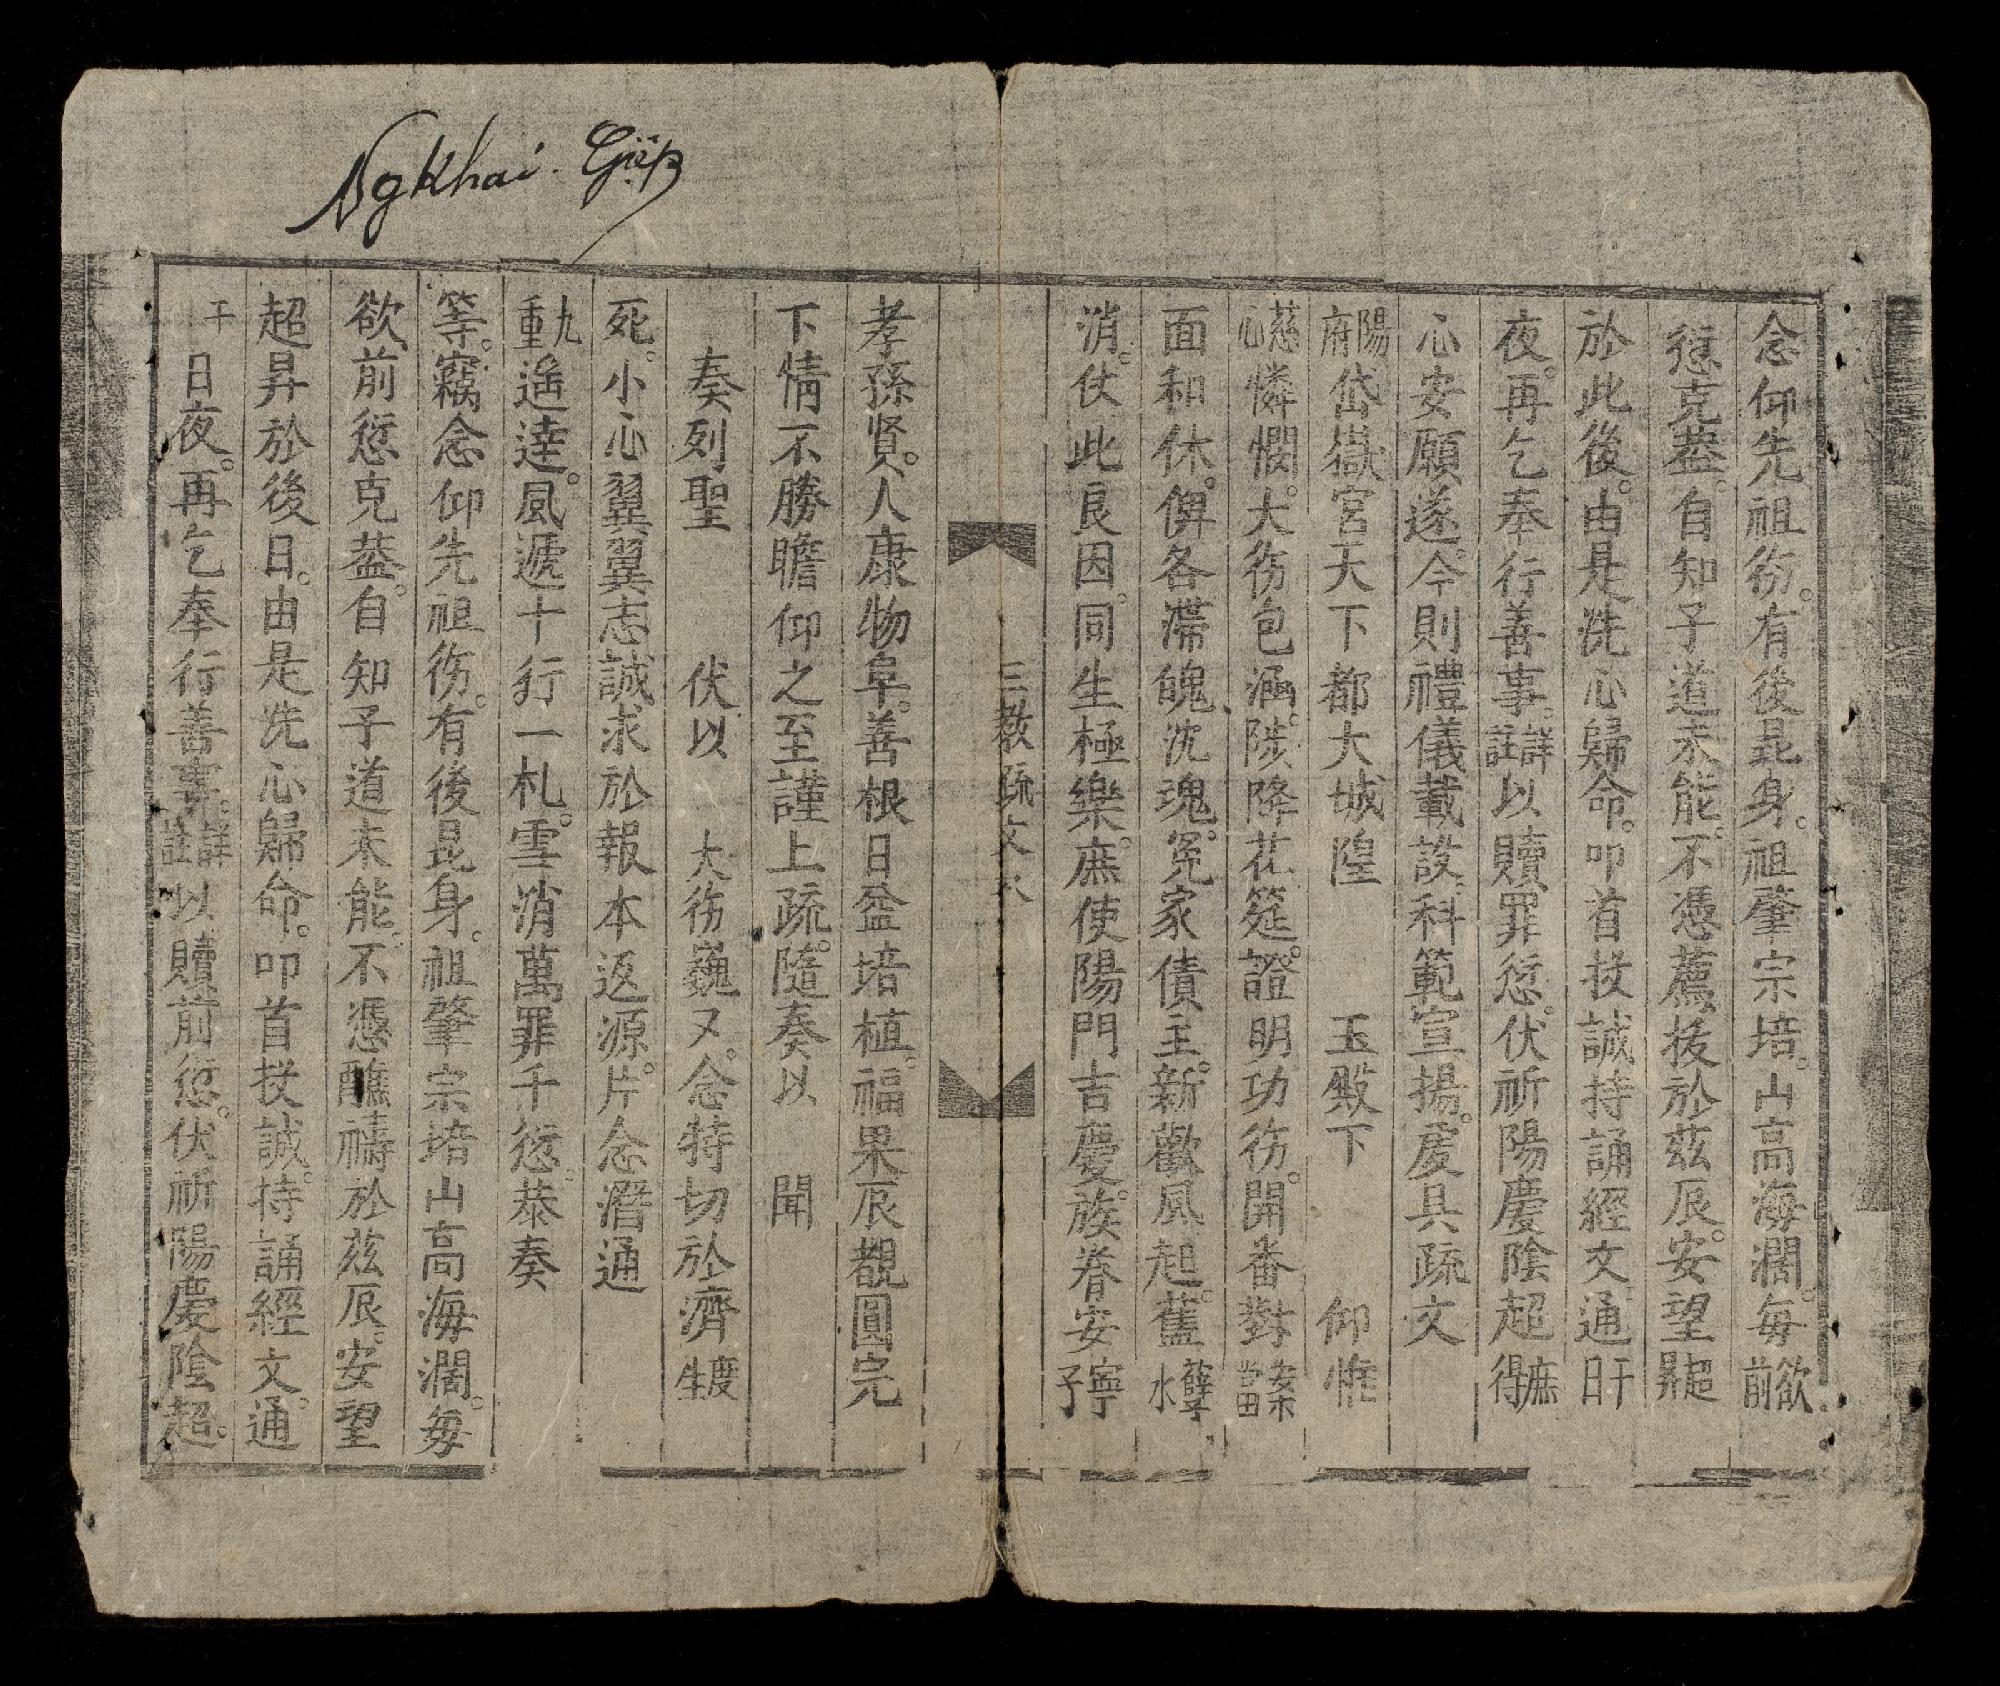 Ng Khai Giáp
念仰先祖徳。有後昆身。祖肇宗培。山高海濶。每欲前
愆克蓋。自知子道未能。不憑薦拔於茲辰。安望超昇
於此後。由是洗心歸命。叩首投誠持誦經文。通干日
夜。再乞奉行善事。詳註以贖罪愆。伏祈陽慶陰超庶得
心安願遂。今則禮儀載設。科範宣揚。虔具疏文
陽府岱嶽宮天下都大城隍 玉殿下 仰惟
慈心憐憫。大徳包涵。陟降花筵。證明功徳。開番對案當
面和休。俾各滯魄沈魂。冤家債主。新歡風起。舊孽水
消。仗此良因。同生極樂。庶使陽門吉慶。族眷安寧子
三教疏文
孝孫賢。人康物阜。善根日益培植。福果辰觀圓完
下情不勝瞻仰之至謹上疏。隨奏以 聞
奏列聖 伏以 大徳巍又。念特切於濟度生
死。小心翼翼志誠求於報本返源。片念潛通
九重遙達。風遞十行一札。雪消萬罪千愆。恭奏
等。竊念仰先祖徳。有後昆身。祖肇宗培山高海濶。每
欲前愆克蓋。自知子道未能。不憑醮禱於茲辰。安望
超昇於後日。由是洗心歸命。叩首投誠。持誦經文通。
干日夜。再乞奉行善事。詳註以贖前愆。伏祈陽慶陰超。